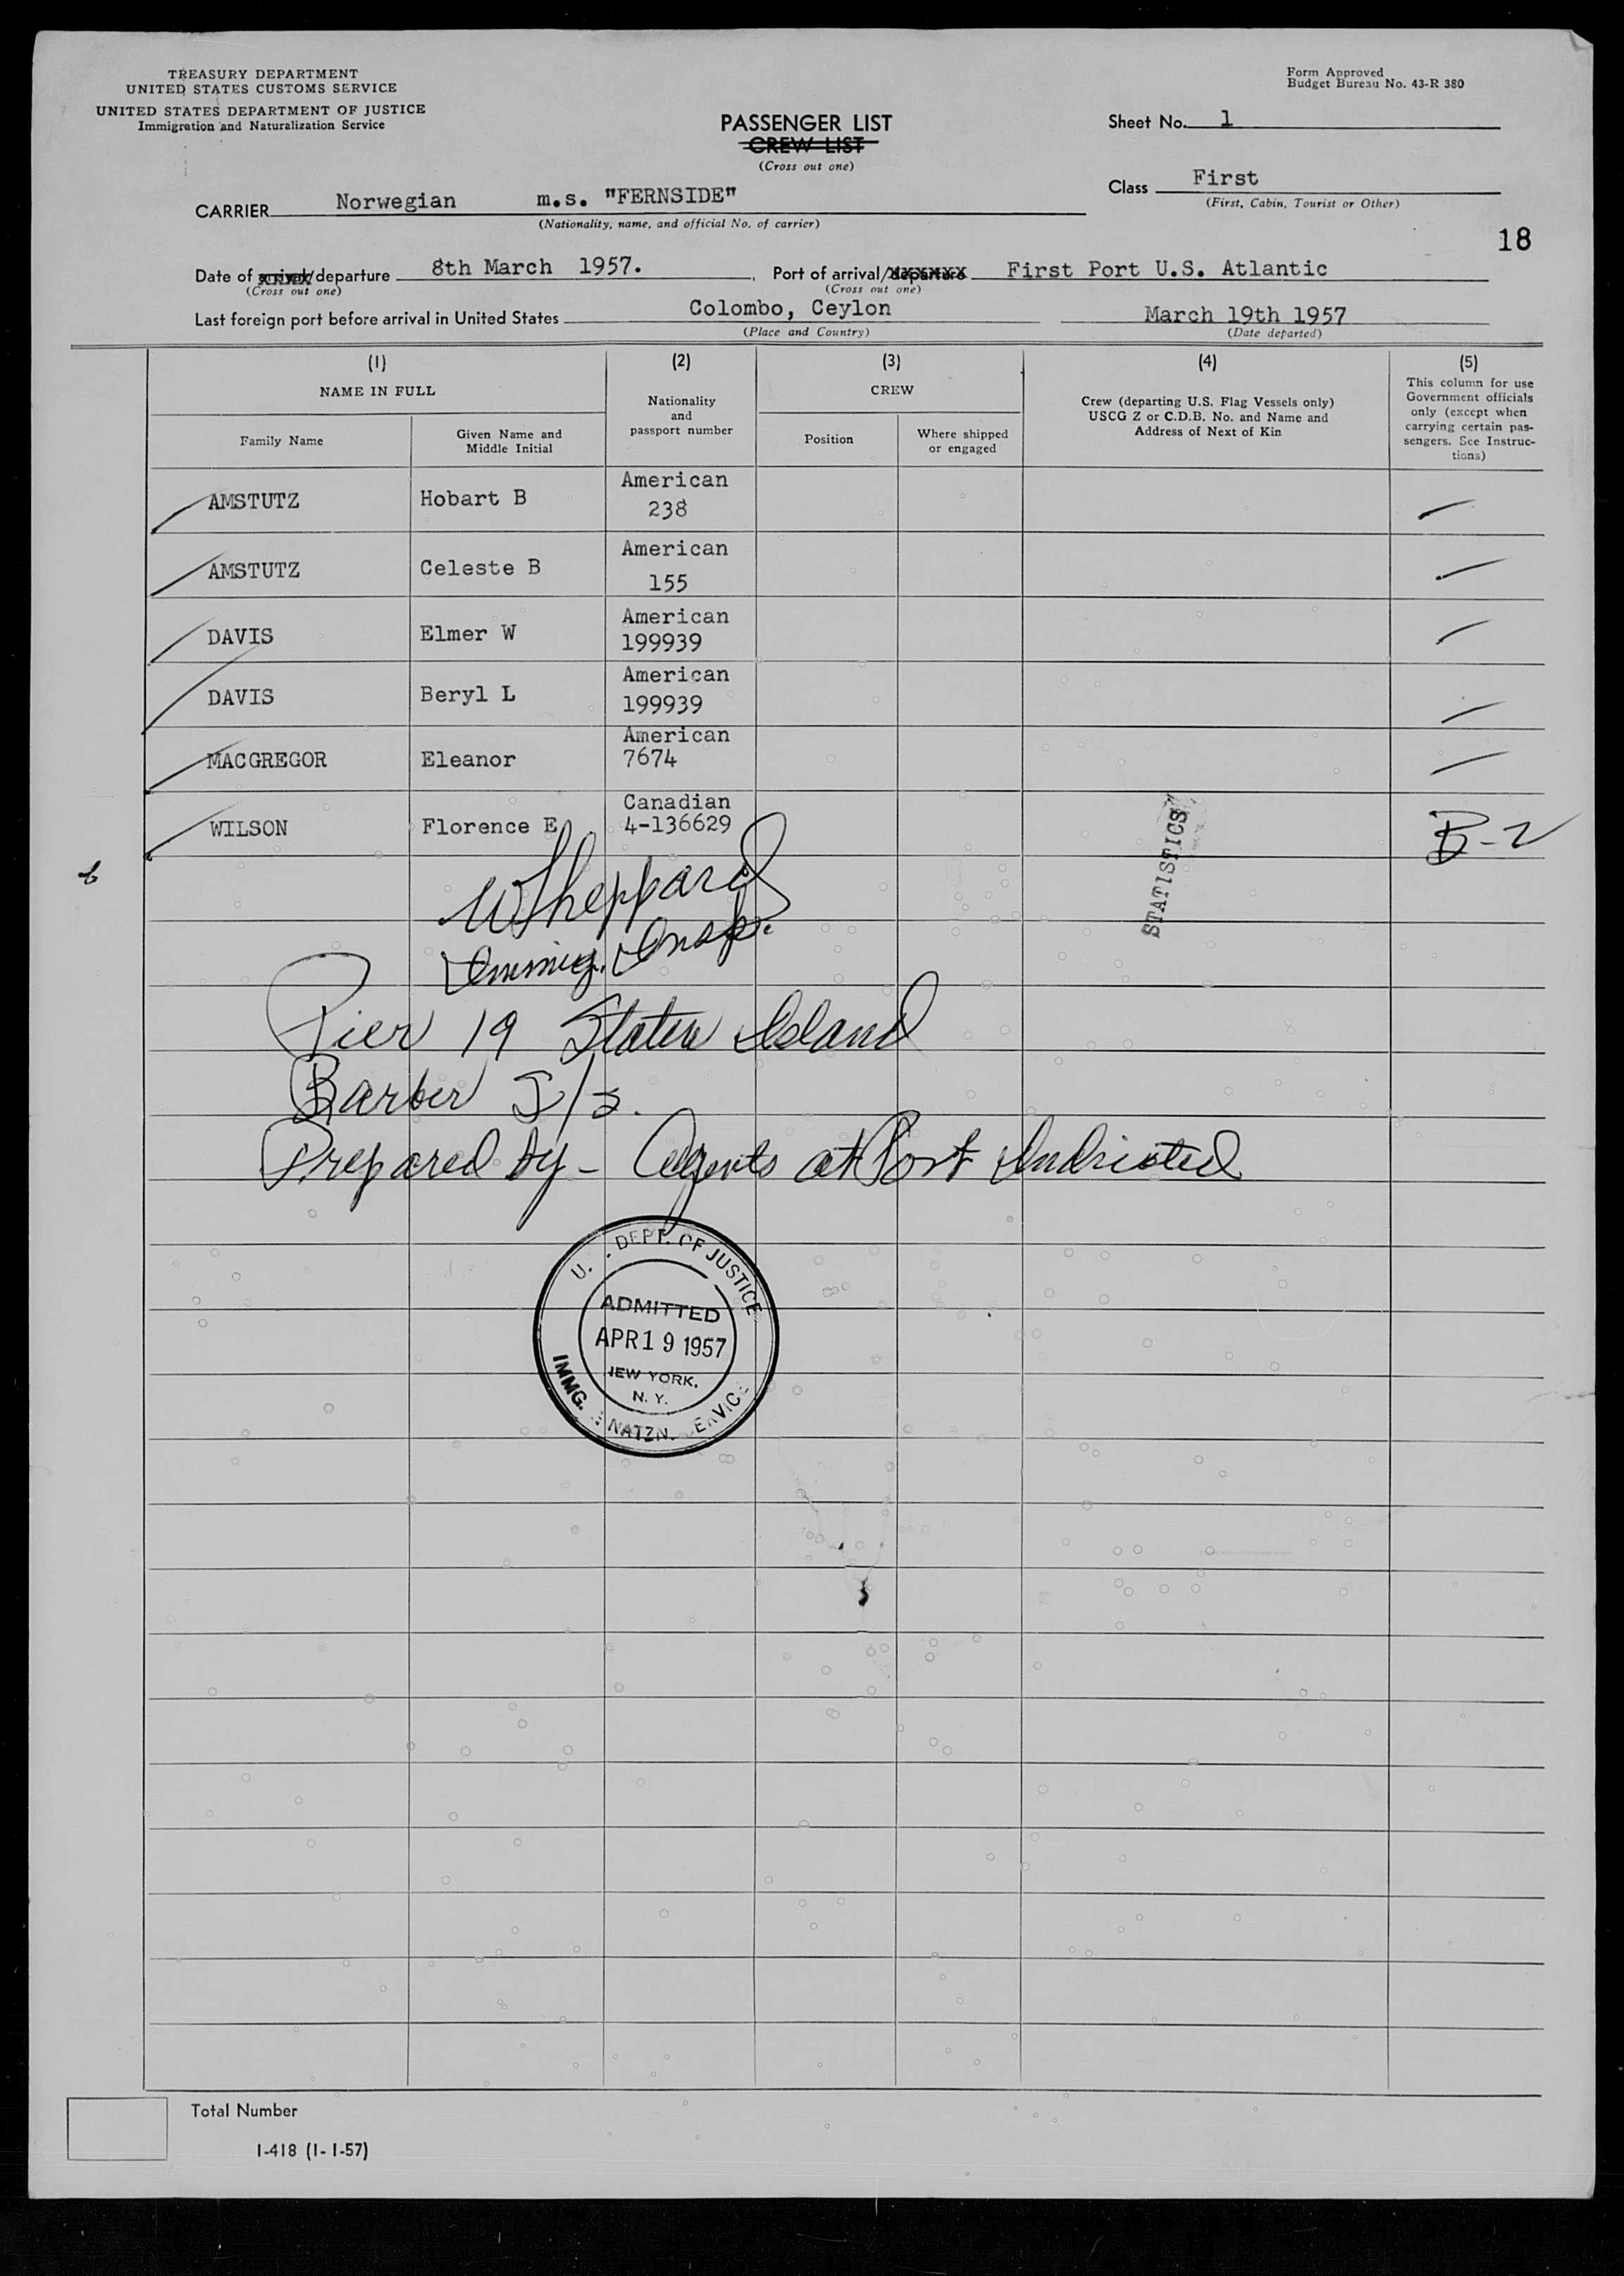 TREASURY DEPARTMENT
UNITED STATES CUSTOMS SERVICE
UNITED STATES DEPARTMENT OF JUSTICE
Immigration and Naturalization Service
Form Approved
Budget Bureau No. 43-R 380
PASSENGER LIST
CREW LIST
(Cross out one)
Sheet No. 1
Class First
(First, Cabin, Tourist or Other)
CARRIER Norwegian m.s. "FERNSIDE"
(Nationality, name, and official No. of carrier)
18
Date of arrival/departure 8th March 1957. Port of arrival/departure First Port U.S. Atlantic
(Cross out one) (Cross out one)
Last foreign port before arrival in United States Colombo, Ceylon March 19th 1957
(Place and Country) (Date departed)
(1) (2) (3) (4) (5)
NAME IN FULL
Family Name
Given Name and
Middle Initial
Nationality
and
passport number
CREW
Position
Where shipped
or engaged
Crew (departing U.S. Flag Vessels only)
USCG Z or C.D.B. No. and Name and
Address of Next of Kin
This column for use
Government officials
only (except when
carrying certain pas-
sengers. See Instruc-
tions)
AMSTUTZ Hobart B American 238
AMSTUTZ Celeste B American 155
DAVIS Elmer W American 199939
DAVIS Beryl L American 199939
MACGREGOR Eleanor American 7674
WILSON Florence E Canadian 4-136629 B-2
STATISTICS
W Sheppard
Immig. Insp.
Pier 19 Staten Island
Barber S/S.
Prepared by - Agents at Port Indicated
U. . DEPT. OF JUSTICE
ADMITTED
APR 19 1957
NEW YORK,
N. Y.
IMMG. & NATZN. SERVICE
Total Number
I-418 (1-1-57)